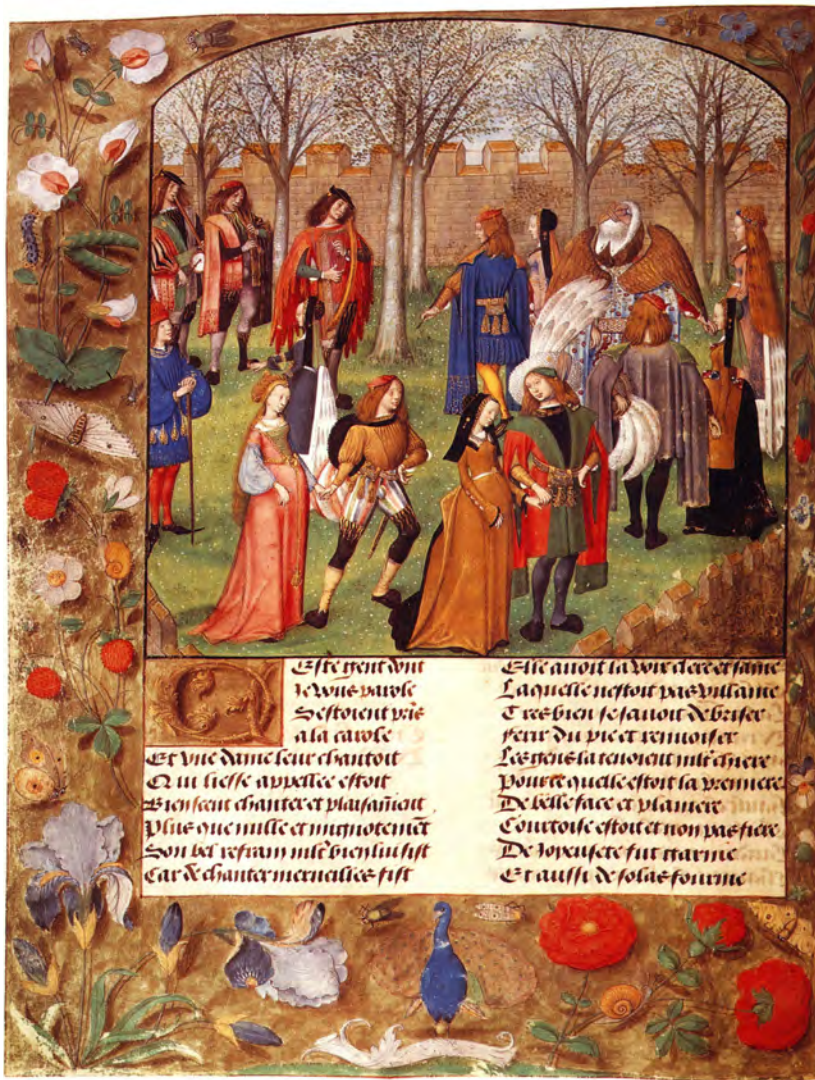 Ceste gent dont
Je vous parole
Sestoient pris
a la carole
Et vne dame leur chantoit
Qui liesse appellee estoit
Bien scent chanter et plaisāment
Plus que nulle et mignotemēt
Son bel refrain mlt bien lui sist
Car de chanter merueilles fist
Elle auoit la voix clere et saine
Laquelle nestoit pas villaine
Tres bien se sauoit debriser
ferir du pie et renuoiser
Les gens la tenoient mlt chiere
Pource quelle estoit la premiere
De belle face et planiere
Courtoise estoit et non pas fiere
De ioyeusete fut garnie
Et aussi de solas fournie